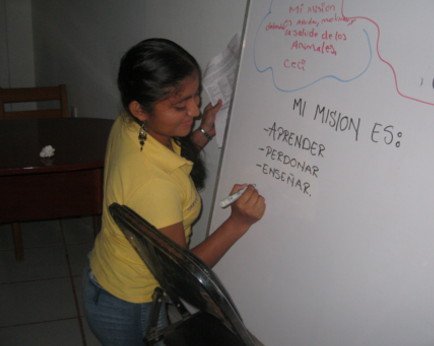 Mi Mision
es
a salud de los
Animales.
Ceci
MI MISION ES:
-APRENDER
-PERDONAR
-ENSEÑAR.